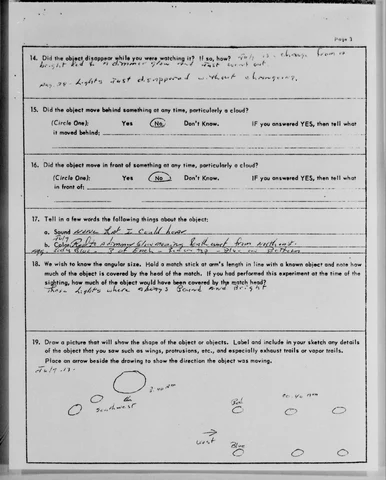 Page 3
14. Did the object disappear while you were watching it? If so, how? July 13 - change from a
bright Red to a dimmer glow and Just went out
Aug. 25. Lights Just disappeared without changing.
15. Did the object move behind something at any time, particularly a cloud?
(Circle One): Yes No Don't Know. IF you answered YES, then tell what
it moved behind:
16. Did the object move in front of something at any time, particularly a cloud?
(Circle One): Yes No Don't Know. IF you answered YES, then tell what
in front of:
17. Tell in a few words the following things about the object:
a. Sound None that I could hear
July
b. Color Red to a dimmer
Aug
18. We wish to know the angular size. Hold a match stick at arm's length in line with a known object and note how
much of the object is covered by the head of the match. If you had performed this experiment at the time of the
sighting, how much of the object would have been covered by the match head?
These Lights where always Round and Bright
19. Draw a picture that will show the shape of the object or objects. Label and include in your sketch any details
of the object that you saw such as wings, protrusions, etc., and especially exhaust trails or vapor trails.
Place an arrow beside the drawing to show the direction the object was moving.
July 13-
Southwest
Red
West
Blue